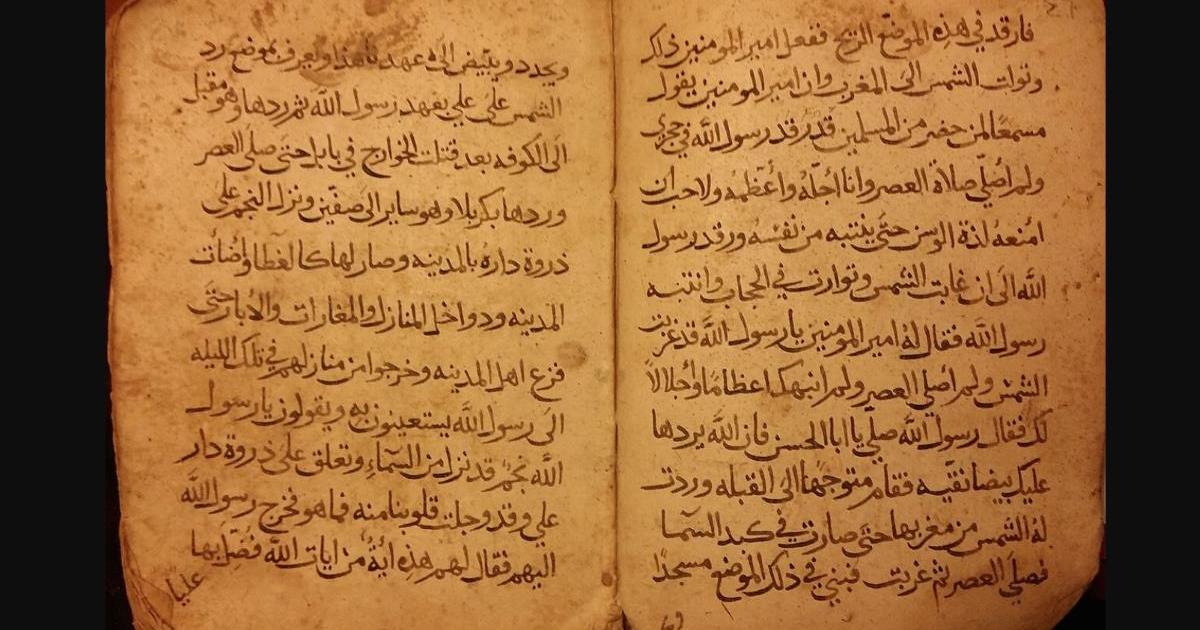 فارقد في هذه الموضع الريح ففعل امير المومنين ذلك
وتوات الشمس الى المغرب وان امير المومنين يقول
مسمعًا لمن حضر من المسلمين قدرقد رسول الله في حجري
ولم اُصلّي صلاة العصر وانا اجلّه واُعَظّمه ولا احب ان
امنعه لذة الوسن حتى ينتبه من نفسه ورقد رسول
الله الى ان غابت الشمس وتوارت في الحجاب وانتبه
رسول الله فقال له امير المومنين يا رسول الله قد غربت
الشمس ولم اصلي العصر ولم انبهك اعظامًا واجلالاً
لك فقال رسول الله صلي يا ابا الحسن فان الله يردها
عليك بيضا نقيّه فقام متوجهًا الى القبله وردت
له الشمس من مغربها حتى صارت في كبد السما
فصلى العصر ثم غربت فبني في ذلك الموضع مسجدًا
ويجدد ويبيّض الى عهدنا هذا ويعرف بموضع رد
الشمس على علي بعهد رسول الله ثم ردها وهو مقبل
الى الكوفه بعد قتلت الخوارج في بابل حتى صلى العصر
وردها بكربلا وهو ساير الى صفّين ونزل النجم على
ذروة داره بالمدينه وصار لها كالغطا واضات
المدينه ودواخل المنازل والمغارات والابار حتى
فزع اهل المدينه وخرجوا من منازلهم في تلك الليله
الى رسول الله يستعينون به ويقولون يا رسول
الله نجمٌ قد نزل من السماء وتعلق على ذروة دار
علي وقد وجلت قلوبنا منه فما هو فخرج رسول الله
اليهم فقال لهم هذه ايةٌ من ايات الله فضل بها
عليًا